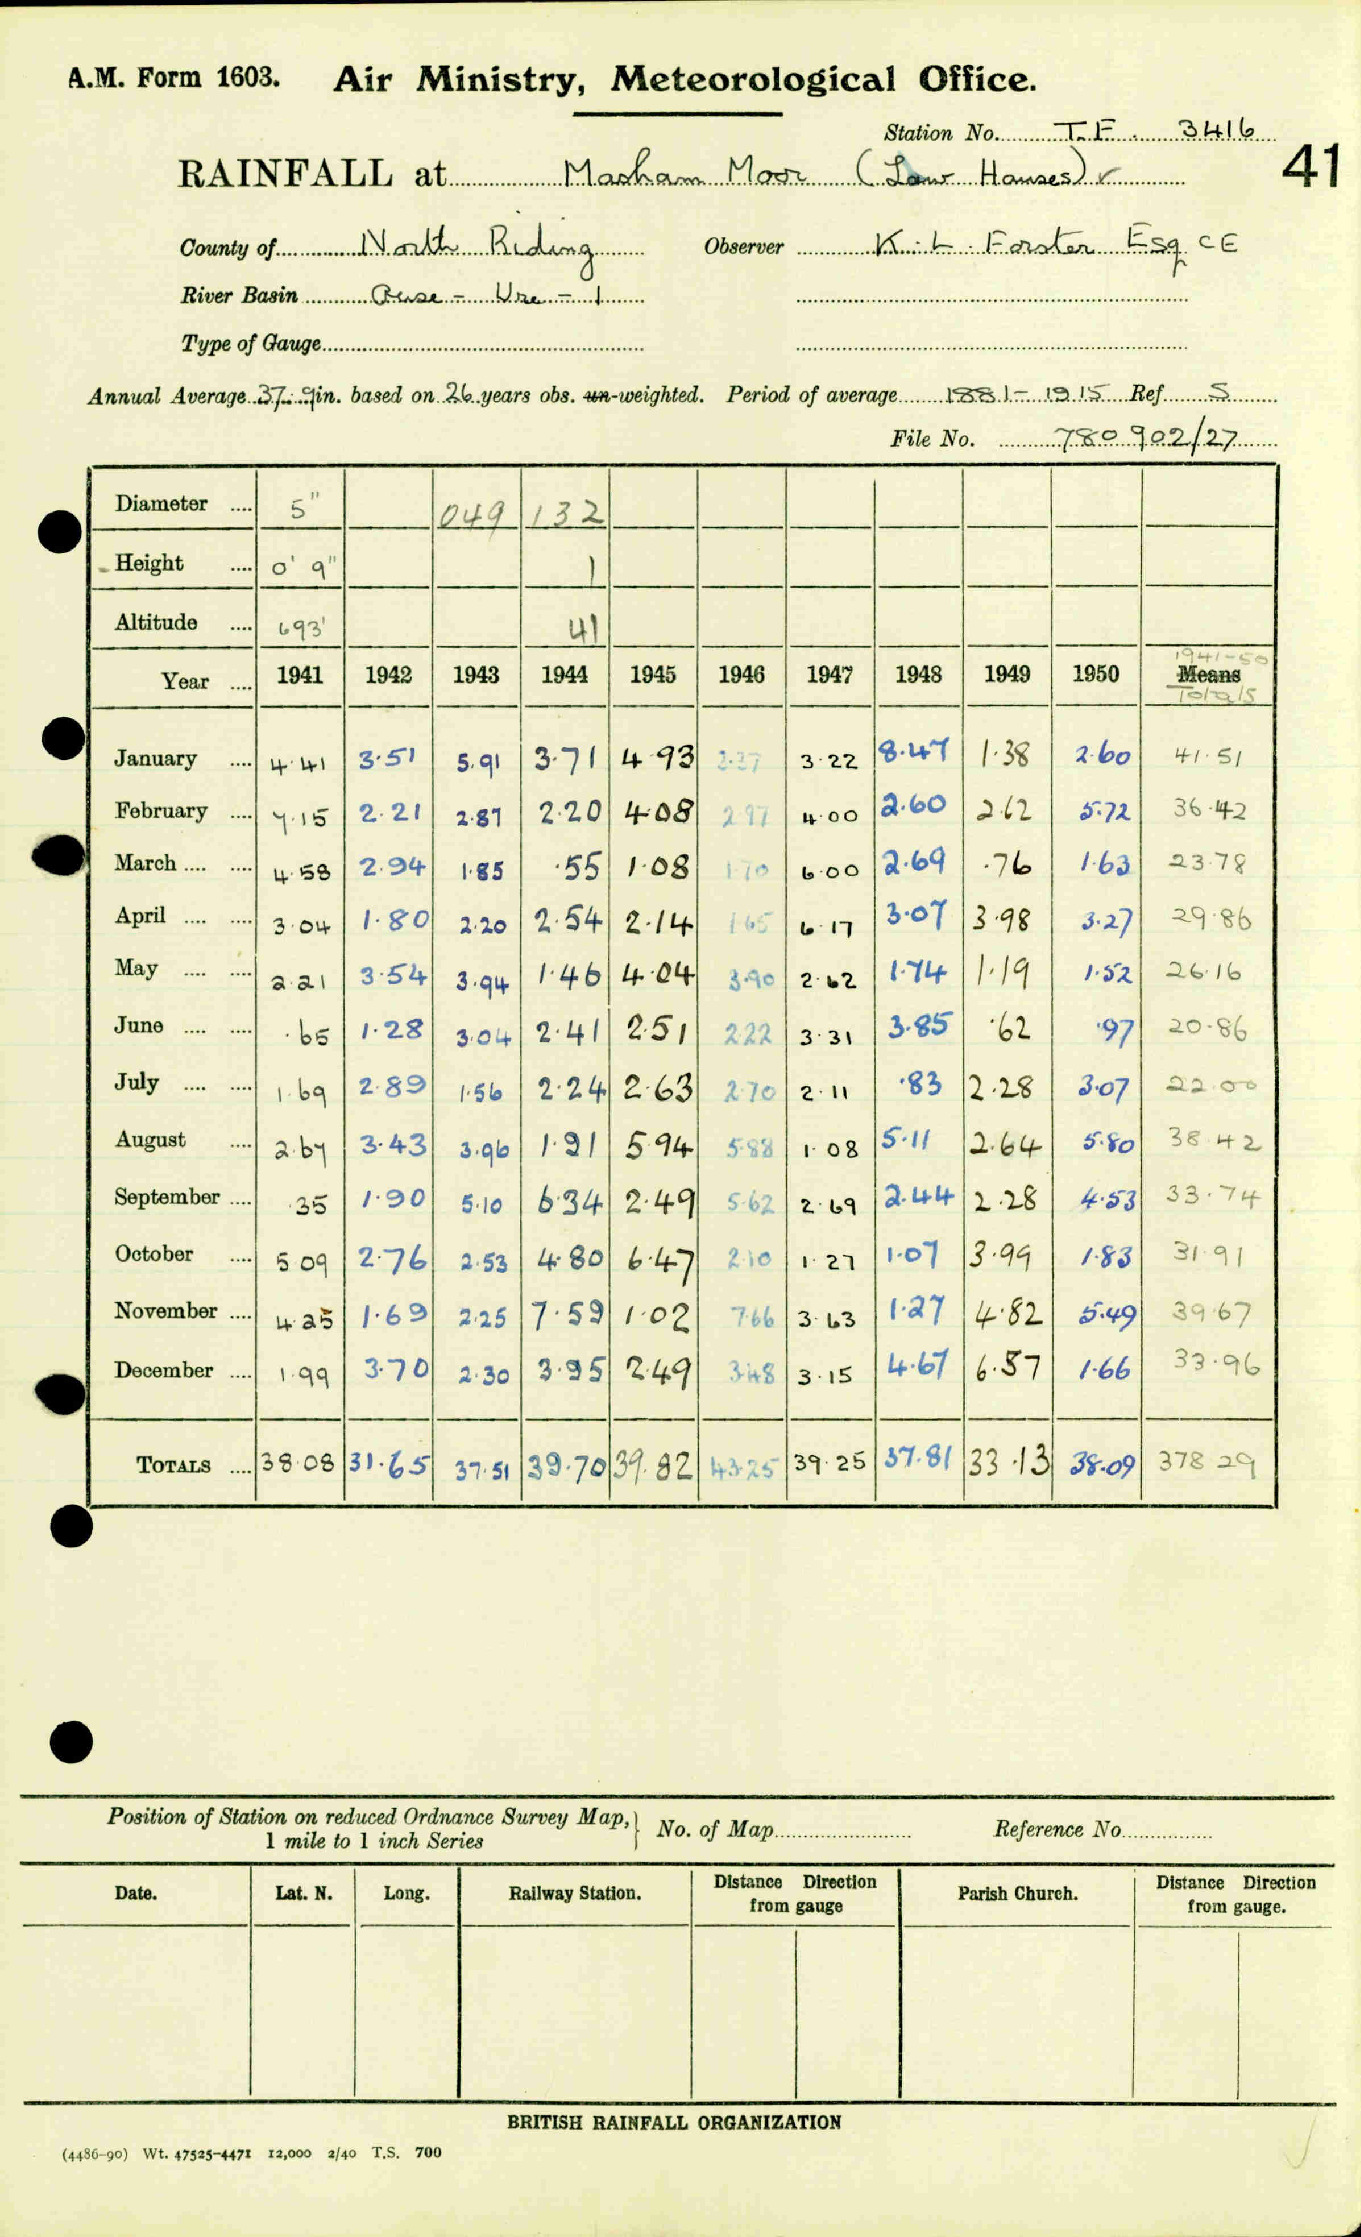 A.M. Form 1603. Air Ministry, Meteorological Office.
Station No. T.F. 3416
41
RAINFALL at Masham Moor (Low Houses) ✓
County of North Riding Observer K. L. Forster Esq CE
River Basin Ouse - Ure - 1
Type of Gauge
Annual Average 37.9 in. based on 26 years obs. un-weighted. Period of average 1881-1915 Ref. S
File No. 780902/27
Diameter .... 5" 049 132
Height .... 0' 9" 1
Altitude .... 693' 41
1941-50
Year .... 1941 1942 1943 1944 1945 1946 1947 1948 1949 1950 Means
Totals
January .... 4.41 3.51 5.91 3.71 4.93 3.37 3.22 8.47 1.38 2.60 41.51
February .... 7.15 2.21 2.87 2.20 4.08 2.97 4.00 2.60 2.62 5.72 36.42
March .... .... 4.58 2.94 1.85 .55 1.08 1.70 6.00 2.69 .76 1.63 23.78
April .... .... 3.04 1.80 2.20 2.54 2.14 1.65 6.17 3.07 3.98 3.27 29.86
May .... .... 2.21 3.54 3.94 1.46 4.04 3.90 2.62 1.74 1.19 1.52 26.16
June .... .... .65 1.28 3.04 2.41 2.51 2.22 3.31 3.85 .62 .97 20.86
July .... .... 1.69 2.89 1.56 2.24 2.63 2.70 2.11 .83 2.28 3.07 22.00
August .... 2.67 3.43 3.96 1.91 5.94 5.88 1.08 5.11 2.64 5.80 38.42
September .... .35 1.90 5.10 6.34 2.49 5.62 2.69 2.44 2.28 4.53 33.74
October .... 5.09 2.76 2.53 4.80 6.47 2.10 1.27 1.07 3.99 1.83 31.91
November .... 4.25 1.69 2.25 7.59 1.02 7.66 3.63 1.27 4.82 5.49 39.67
December .... 1.99 3.70 2.30 3.95 2.49 3.48 3.15 4.67 6.57 1.66 33.96
TOTALS .... 38.08 31.65 37.51 39.70 39.82 43.25 39.25 37.81 33.13 38.09 378.29
Position of Station on reduced Ordnance Survey Map,
1 mile to 1 inch Series
No. of Map Reference No.
Date. Lat. N. Long. Railway Station. Distance Direction from gauge Parish Church. Distance Direction from gauge.
BRITISH RAINFALL ORGANIZATION
(4486-90) Wt. 47525-4471 12,000 2/40 T.S. 700